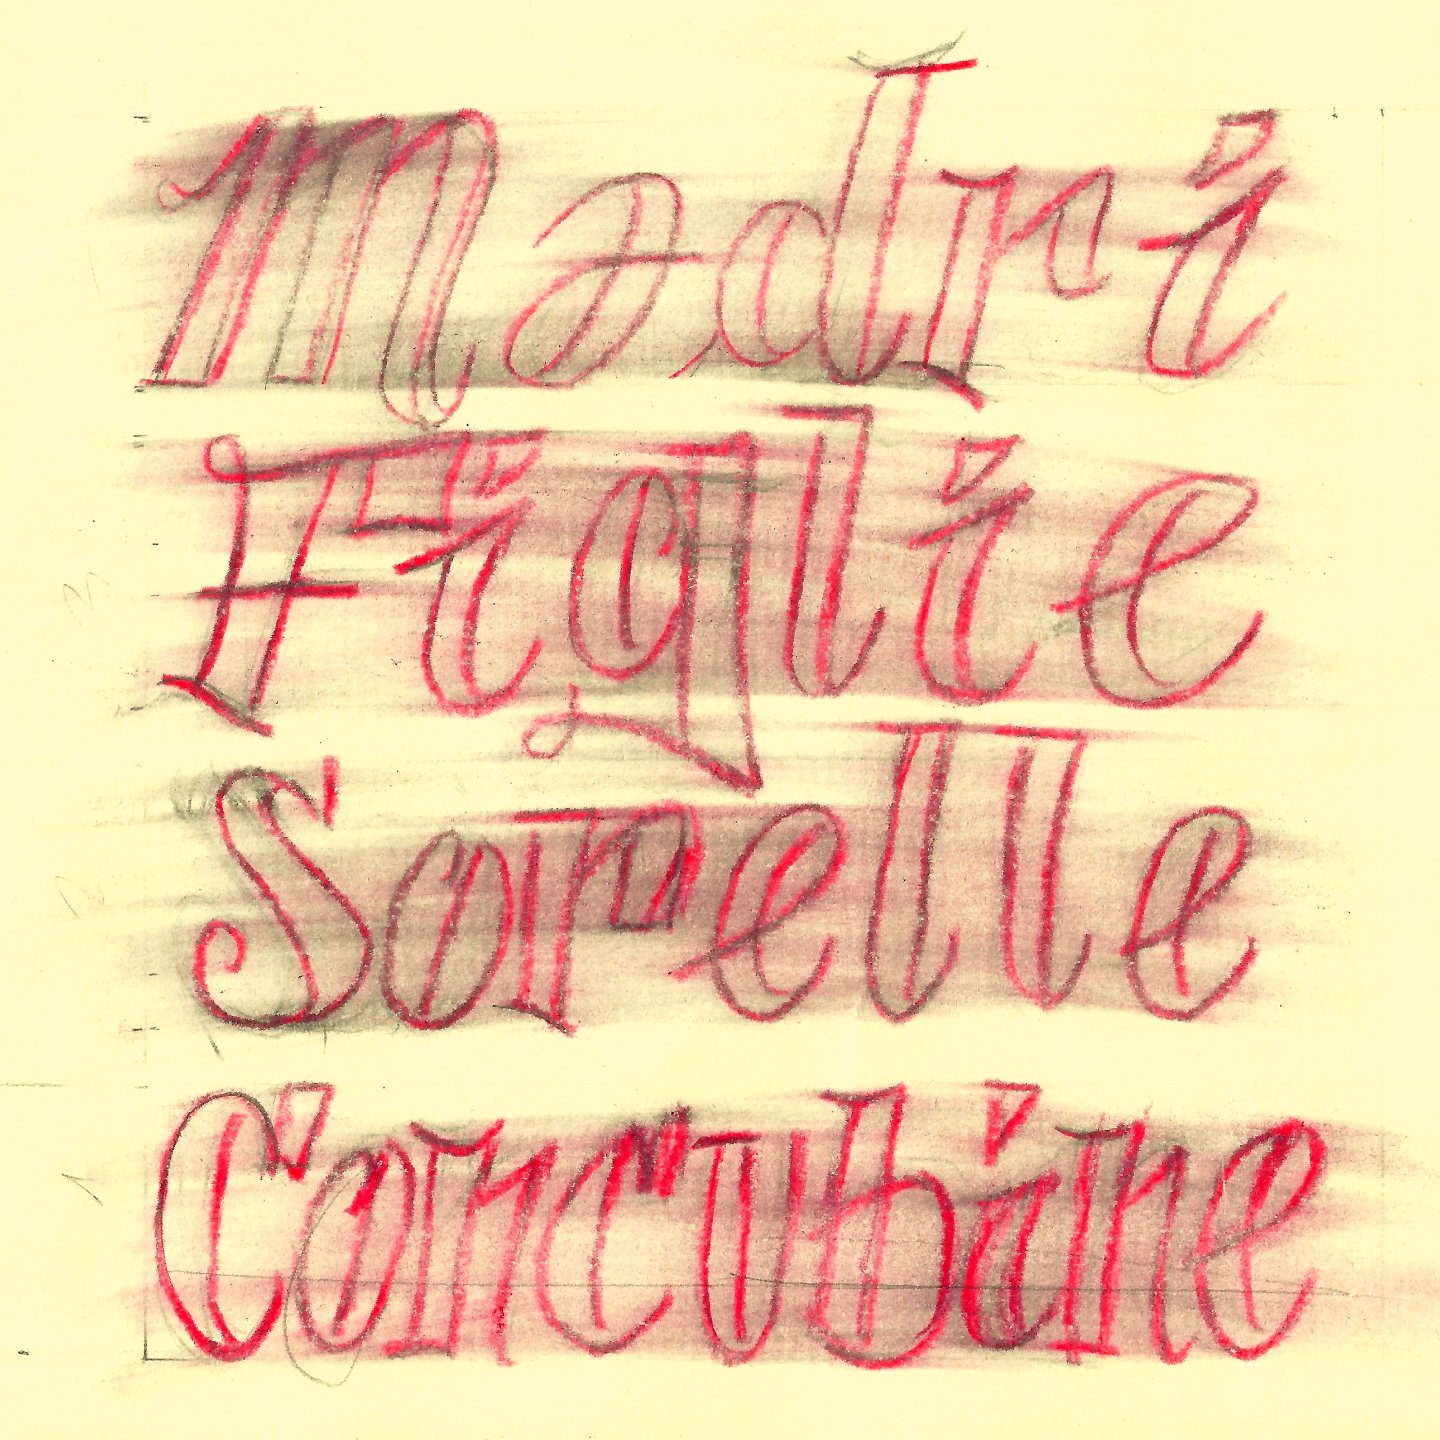 Madri
Figlie
Sorelle
Concubine